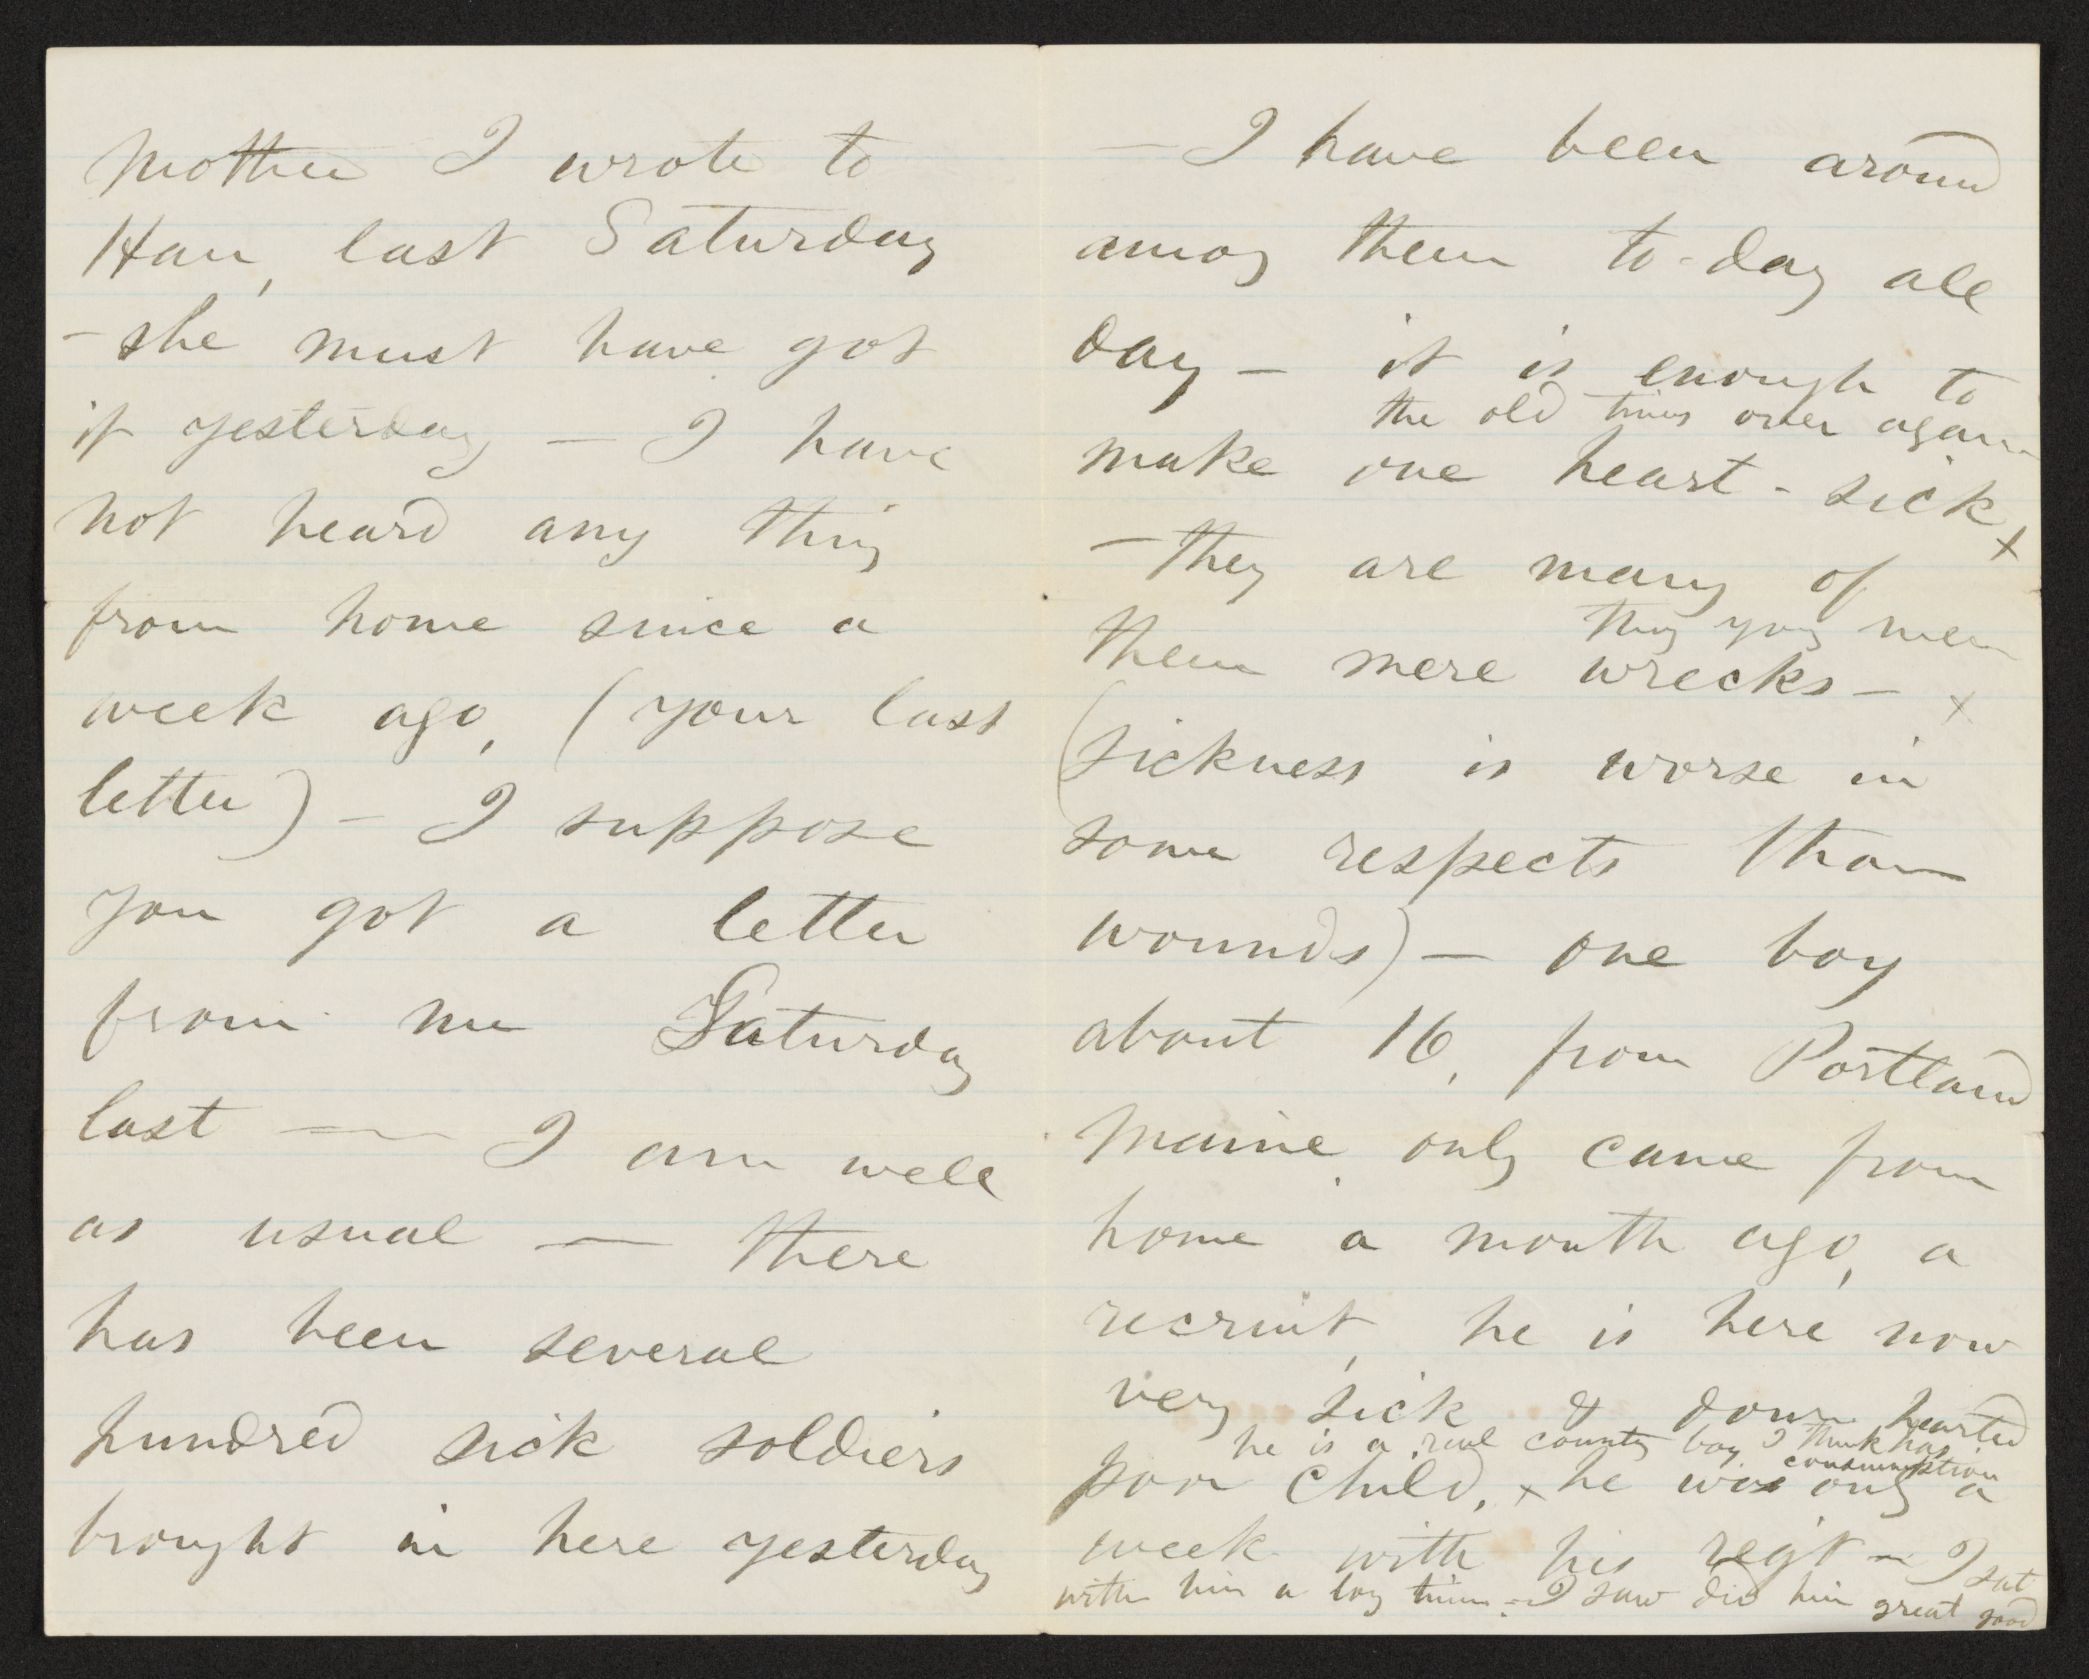 Mother I wrote to
Han, last Saturday
- she must have got
it yesterday — I have
not heard any thing
from home since a
week ago, (your last
letter) - I suppose
you got a letter
from me Saturday
last — I am well
as usual — there
has been several
hundred sick soldiers
brought in here yesterday
— I have been around
among them to-day all
day — it is enough to
the old times over again
make one heart-sick, x
— they are many of
they young men
them mere wrecks — x
(sickness is worse in
some respects than
wounds) — one boy
about 16, from Portland
Maine, only came from
home a month ago, a
recruit, he is here now
very sick & down hearted
he is a real country boy I think has
consumption
poor child, x he was only a
week with his reg't — I sat
with him a long time — I saw did him great good